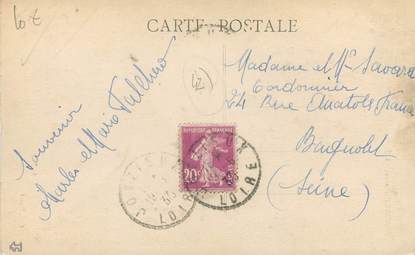 10 €
CARTE POSTALE
42
Souvenir
Charles et Marie
Madame et Mr Savard
Cordonnier
24 Rue Anatole France
Bagnolet
(Seine)
REPUBLIQUE FRANÇAISE
20c
LOIRE
LOIRE